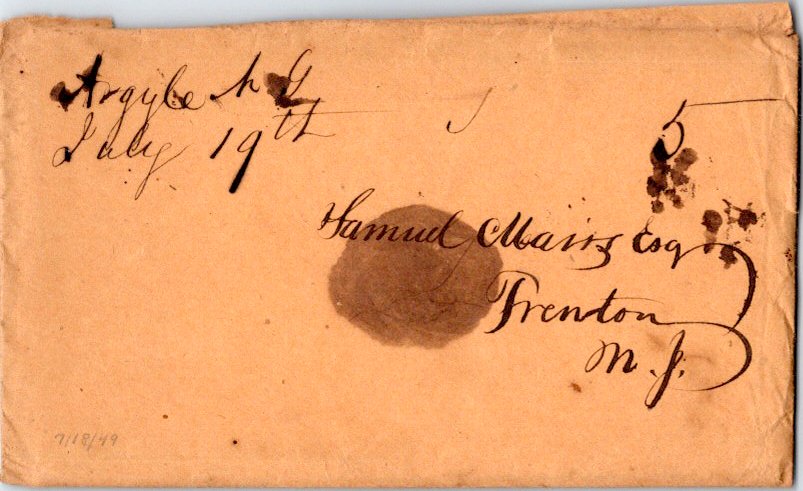 Argyle N Y
July 19th
5
Samuel Mairs Esq
Trenton
N. J.
7/18/49